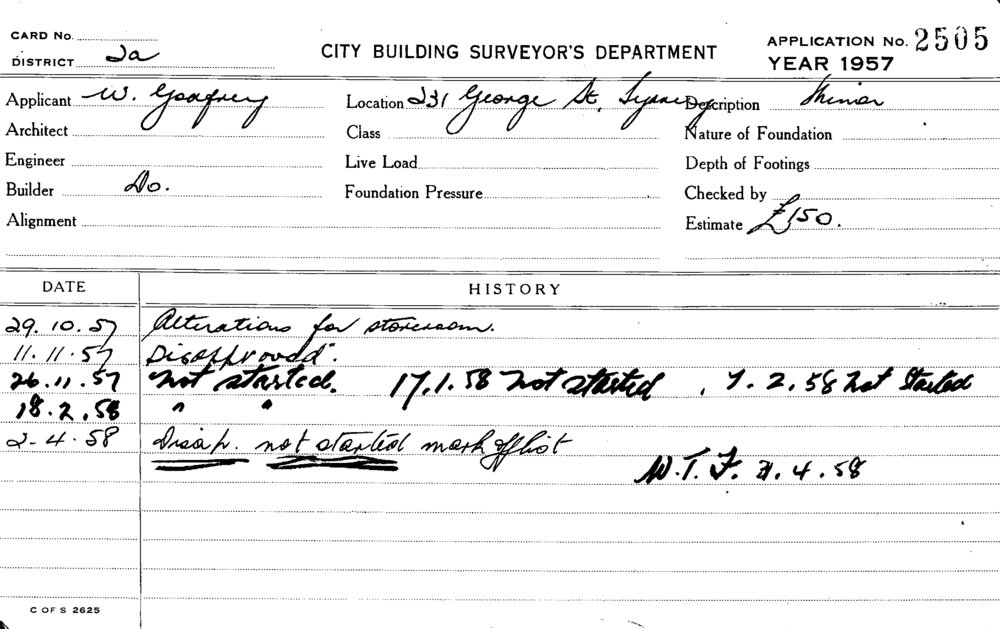 CARD No.
DISTRICT 2a
CITY BUILDING SURVEYOR'S DEPARTMENT
APPLICATION No. 2505
YEAR 1957
Applicant W. Godfrey Location 231 George St, Sydney Description Minor
Architect Class Nature of Foundation
Engineer Live Load Depth of Footings
Builder Do. Foundation Pressure Checked by
Alignment Estimate £150.
DATE HISTORY
29.10.57 Alterations for storeroom.
11.11.57 Disapproved".
26.11.57 not started. 17.1.58 not started , 7.2.58 not started
18.2.58 " "
2-4-58 Disap. not started mark off list
W.T.F. 2.4.58
C OF S 2625